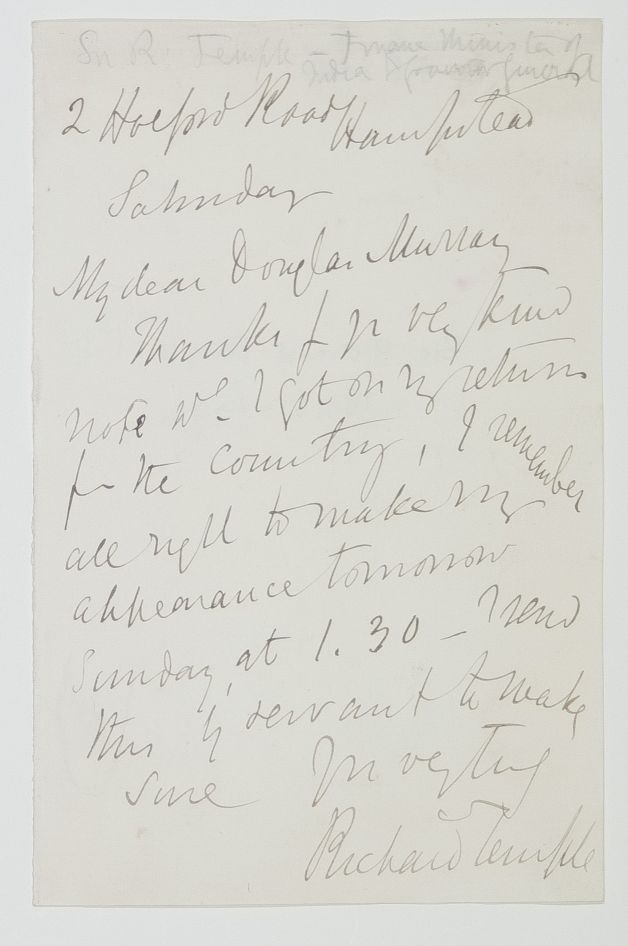 Sir R. Temple - Finance Minister of
India & Governor General
2 Holford Road Hampstead
Saturday
My dear Douglas Murray
Thanks f yr very kind
note wh I got on my return
fm the country, I remember
all right to make my
appearance tomorrow
Sunday, at 1.30 - I send
this by servant to make
sure Yrs very truly
Richard Temple